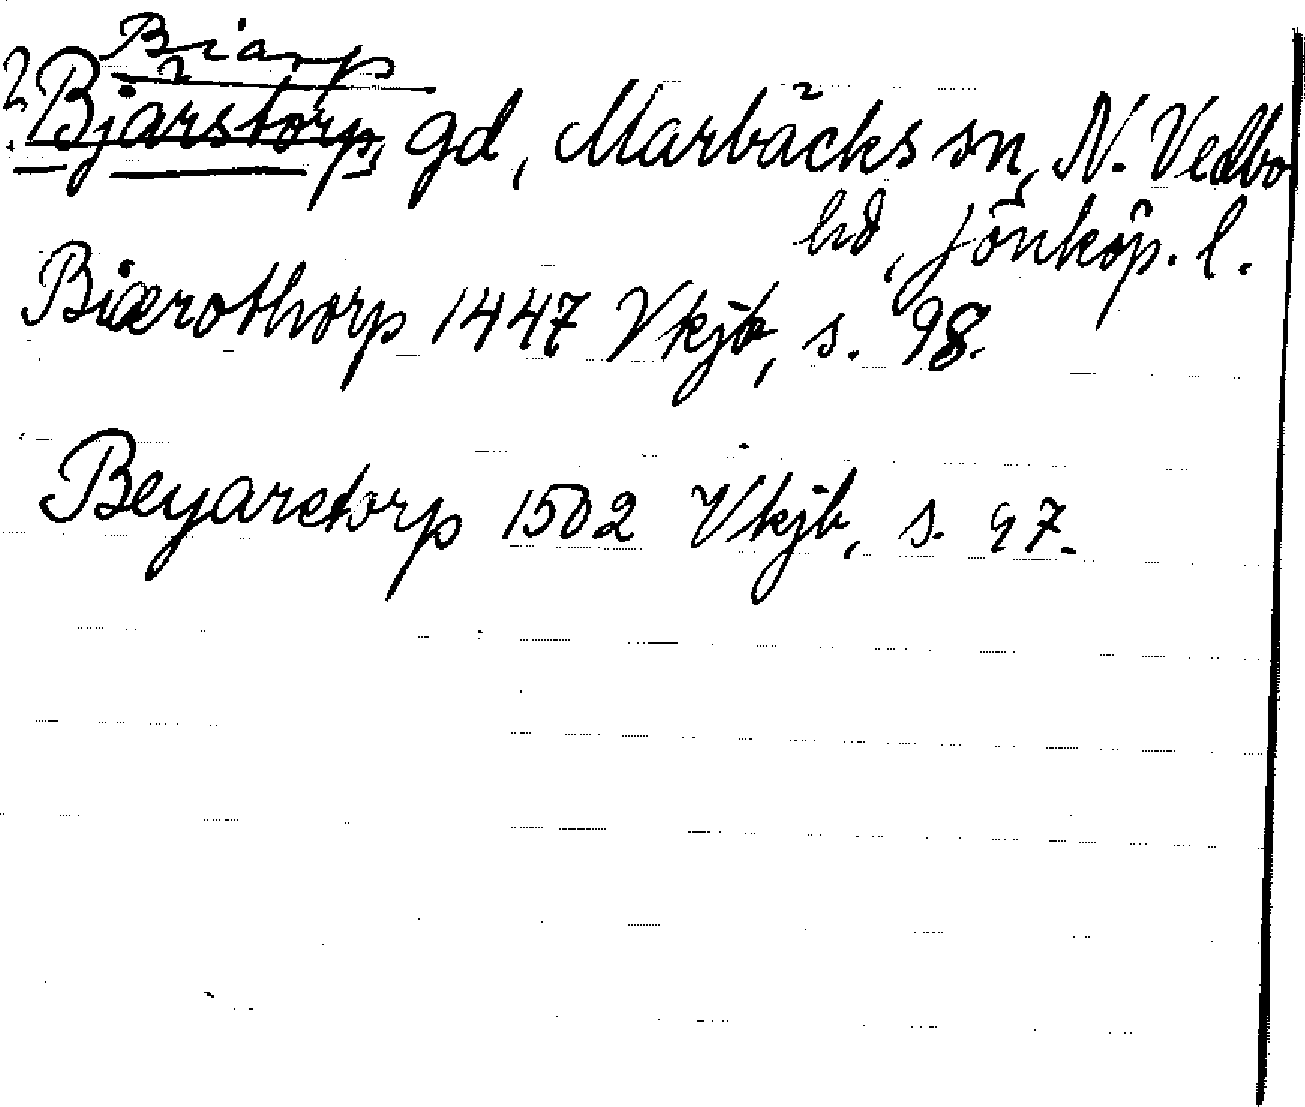 Biarp
? Bjärstorp, gd, Marbäcks sn, N. Vedbo
hd, Jönköp. l.
Biærothorp 1447 Vkjb, s. 98.
Beyarstorp 1502 Vkjb, s. 97.